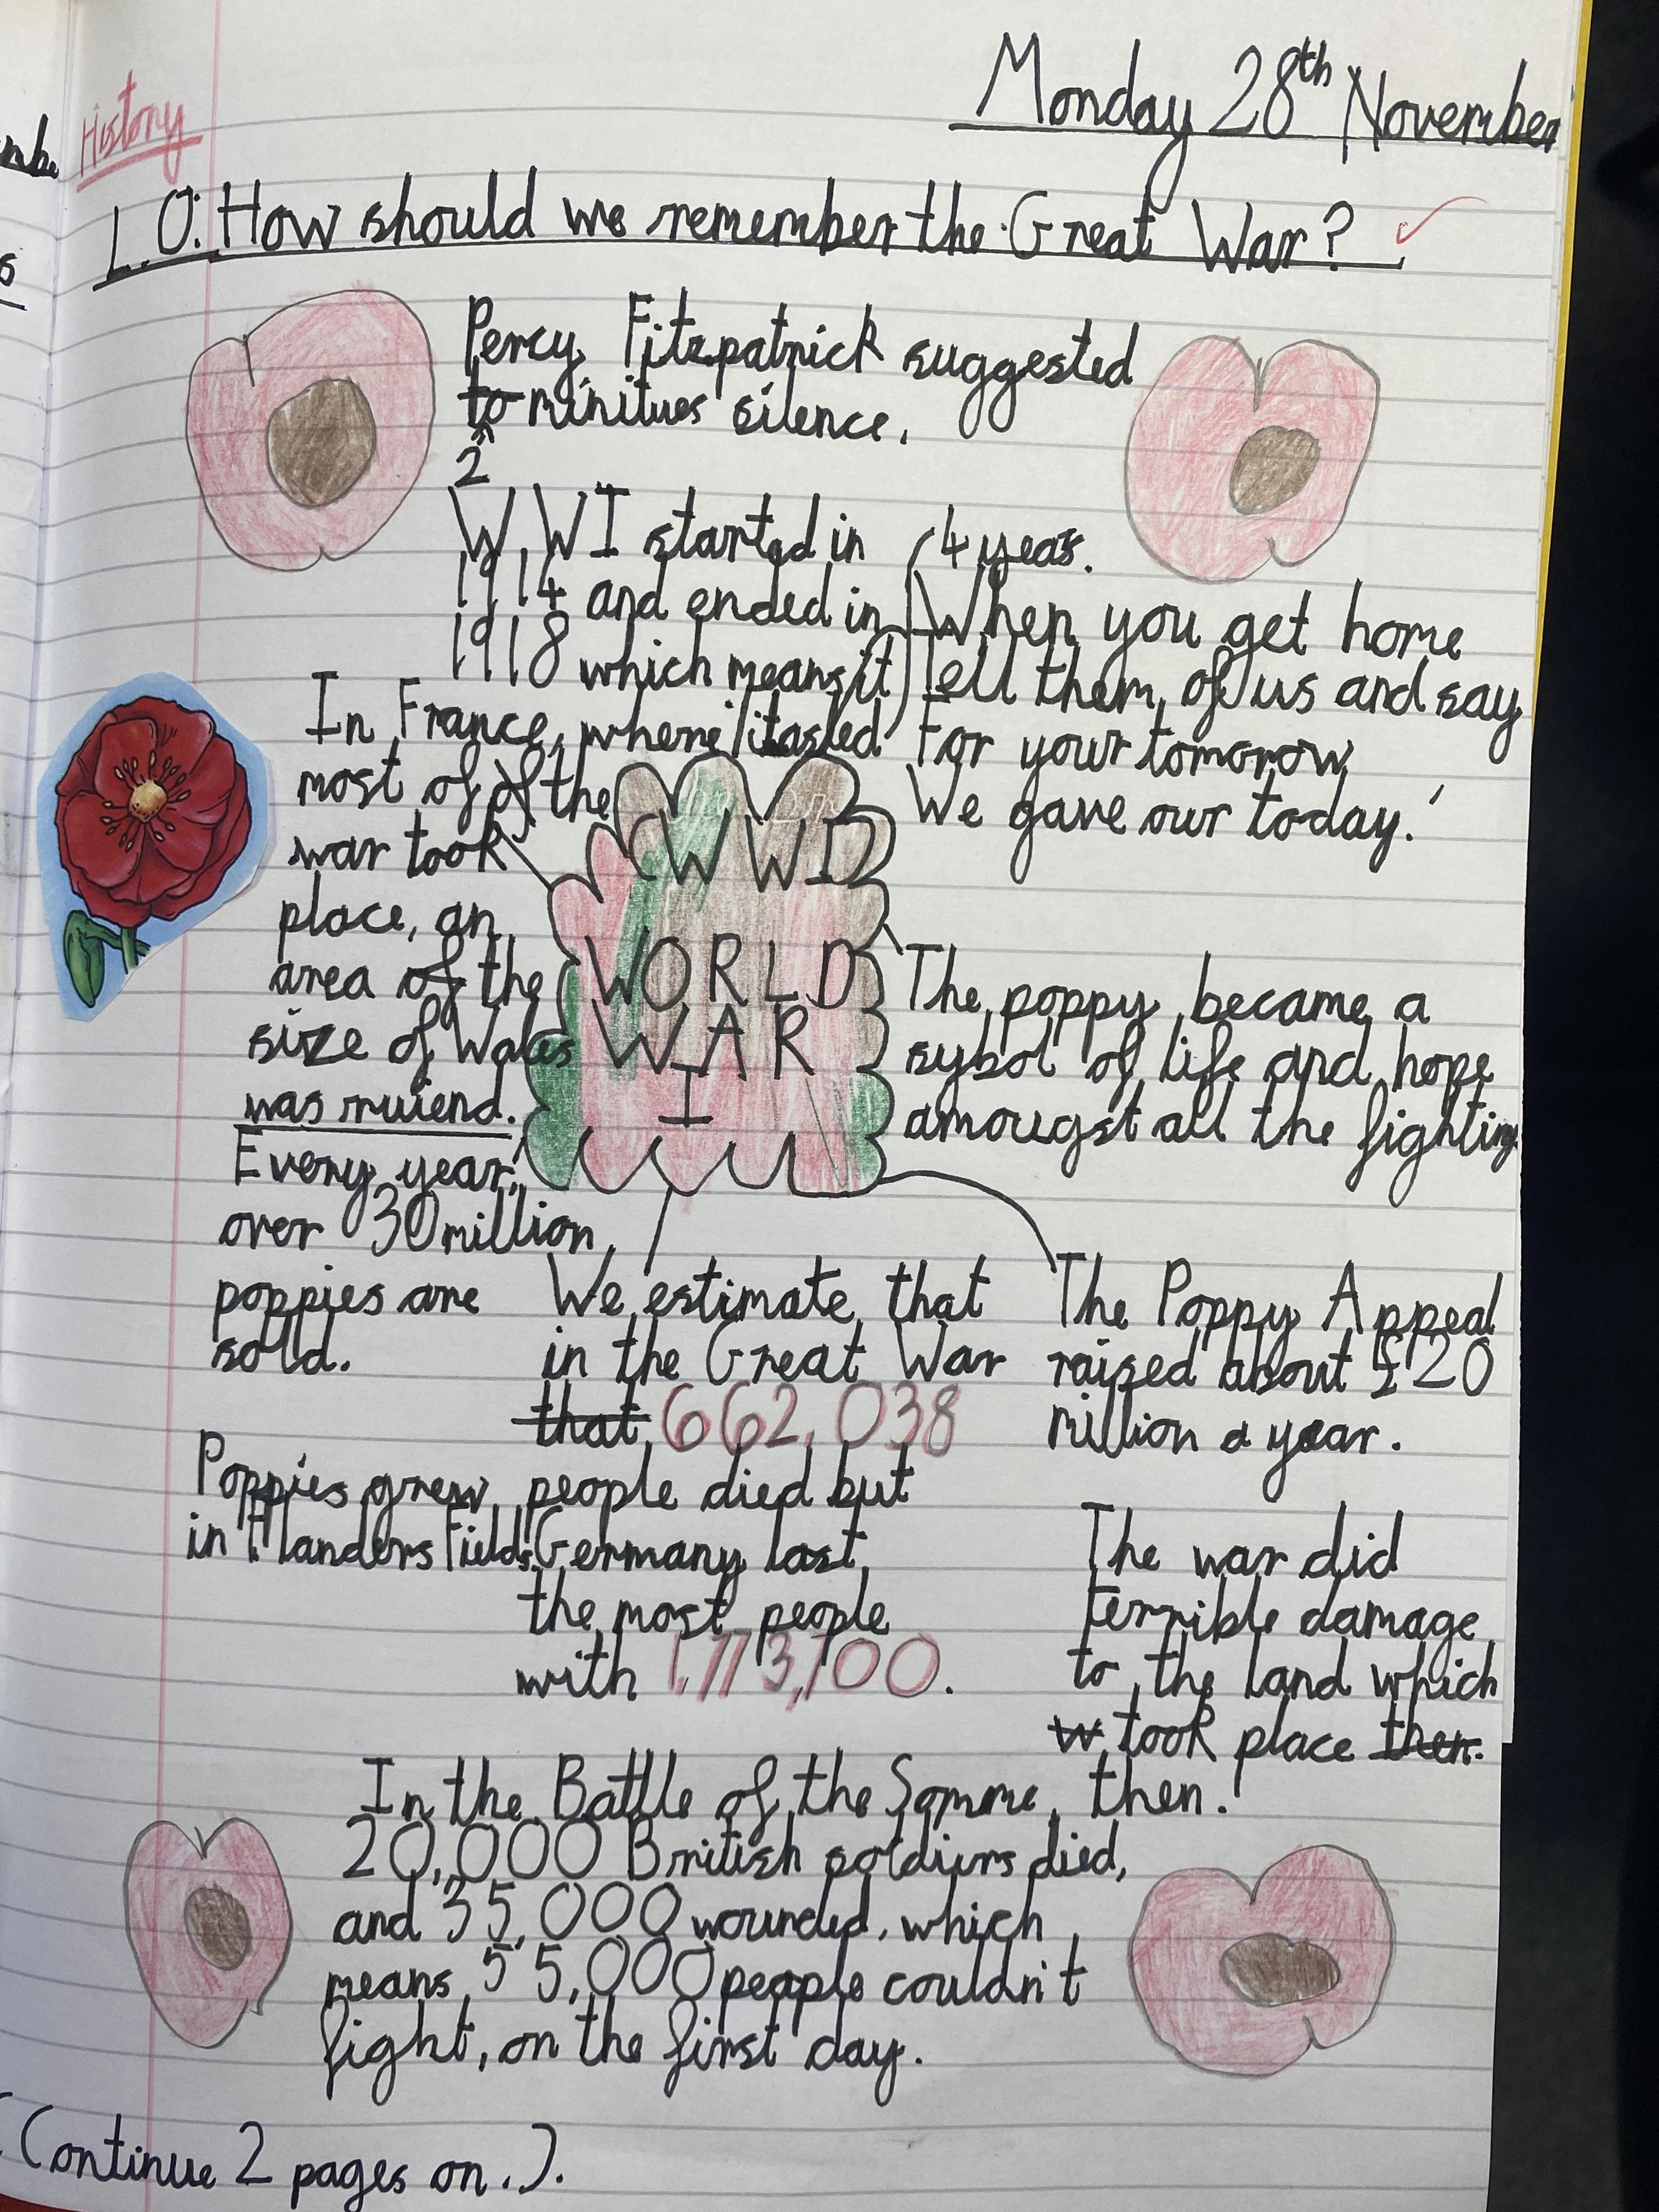 Monday 28th November
History
L.O. How should we remember the Great War?
Percy Fitzpatrick suggested
to minitues silence.
2
W.W I started in
1914 and ended in
1918 which means it
lasted
4 years.
'When you get home
Tell them of us and say
For your tomorow
We gave our today.'
In France, where
most of of the
war took
place, an
area of the
size of Wales
was ruiend.
(WWI)
WORLD
WAR
I
The poppy became a
sybol of life and hope
amougst all the fighting
Every year,
over 30 million
poppies are
sold.
We estimate that
in the Great War
that 662,038
people died but
Germany last
the most people
with 1,773,700.
The Poppy Appeal
raised about £20
million a year.
Poppies grew
in Flanders Fields.
The war did
terrible damage
to the land which
w took place then.
then.
In the Battle of the Somme,
20,000 British soldiers died,
and 35,000 wounded, which
means 55,000 people couldn't
fight, on the first day.
(Continue 2 pages on.).